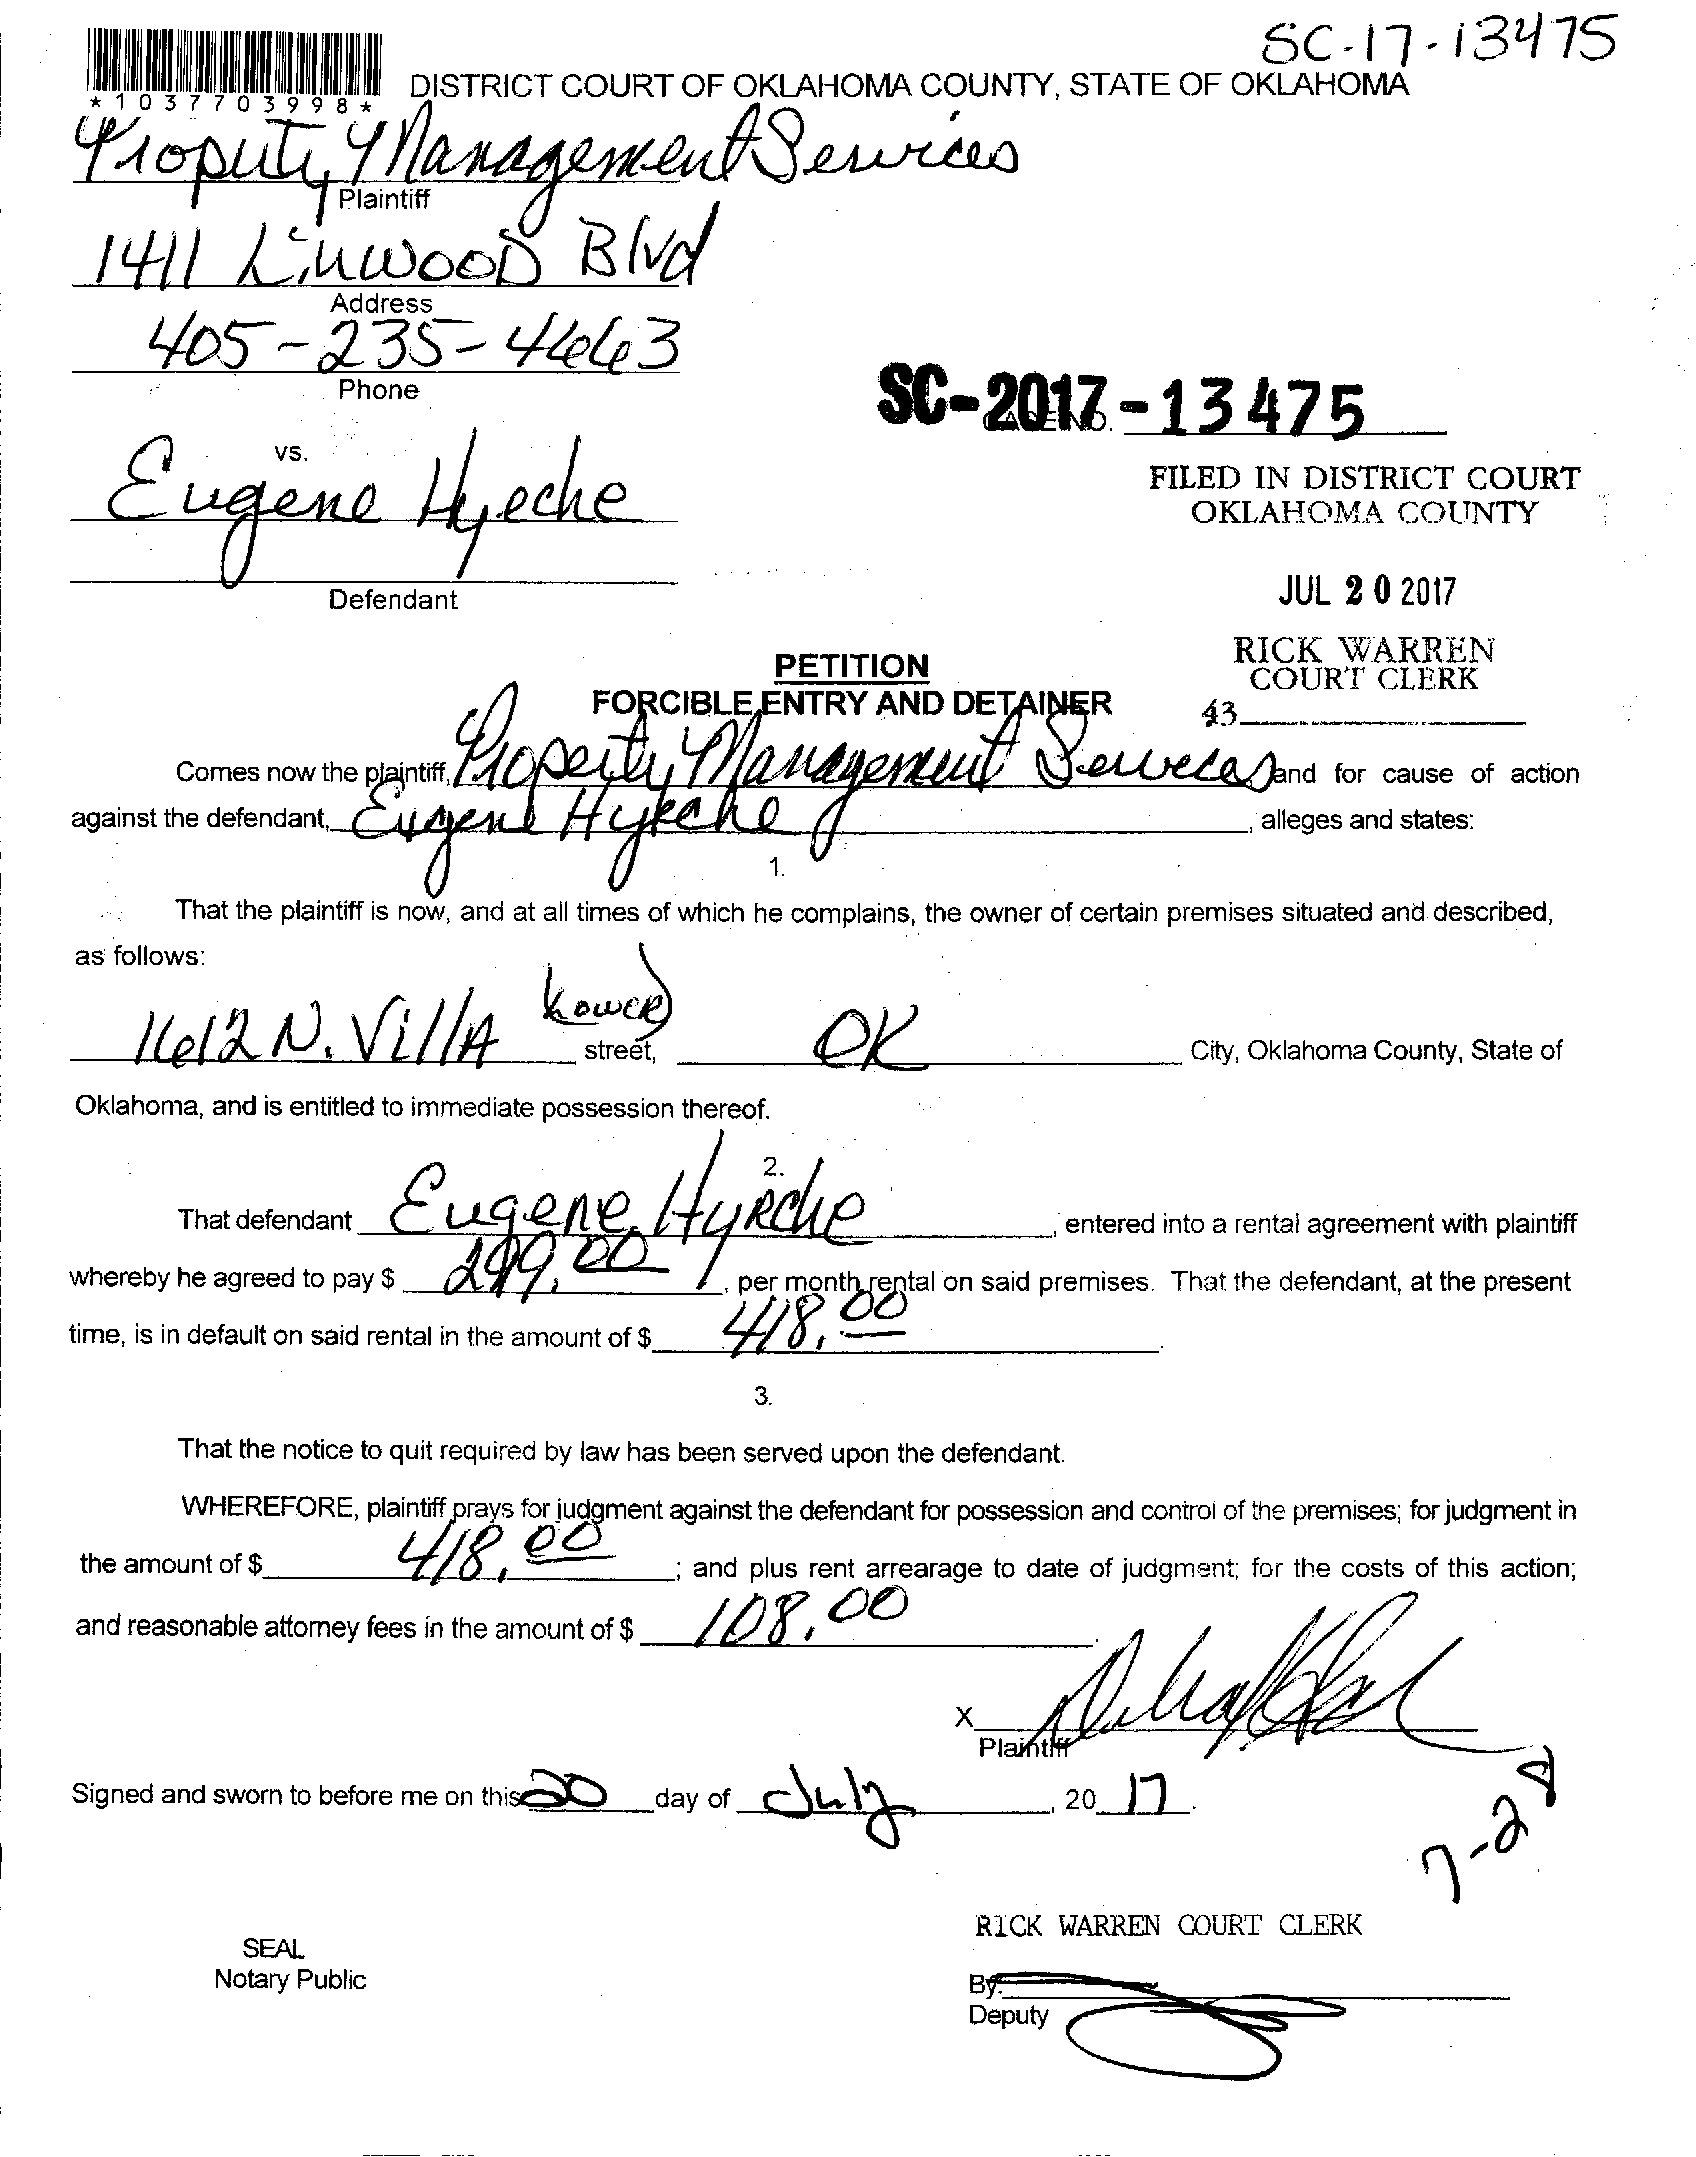 SC-17-13475
*1037703998*
DISTRICT COURT OF OKLAHOMA COUNTY, STATE OF OKLAHOMA
Property Management Services
Plaintiff
1411 Linwood Blvd
Address
405-235-4663
Phone
SC-2017-13475
CASE NO.
vs.
Eugene Hyeche
Defendant
FILED IN DISTRICT COURT
OKLAHOMA COUNTY
JUL 20 2017
RICK WARREN
COURT CLERK
43
PETITION
FORCIBLE ENTRY AND DETAINER
Comes now the plaintiff, Property Management Services and for cause of action
against the defendant, Eugene Hyeche, alleges and states:
1.
That the plaintiff is now, and at all times of which he complains, the owner of certain premises situated and described,
as follows:
1612 N. Villa (Lower) street, OK City, Oklahoma County, State of
Oklahoma, and is entitled to immediate possession thereof.
2.
That defendant Eugene Hyeche, entered into a rental agreement with plaintiff
whereby he agreed to pay $ 299.00, per month rental on said premises. That the defendant, at the present
time, is in default on said rental in the amount of $ 418.00.
3.
That the notice to quit required by law has been served upon the defendant.
WHEREFORE, plaintiff prays for judgment against the defendant for possession and control of the premises; for judgment in
the amount of $ 418.00; and plus rent arrearage to date of judgment; for the costs of this action;
and reasonable attorney fees in the amount of $ 108.00.
X
Plaintiff
Signed and sworn to before me on this 20 day of July, 2017.
7-28
RICK WARREN COURT CLERK
SEAL
Notary Public
By:
Deputy